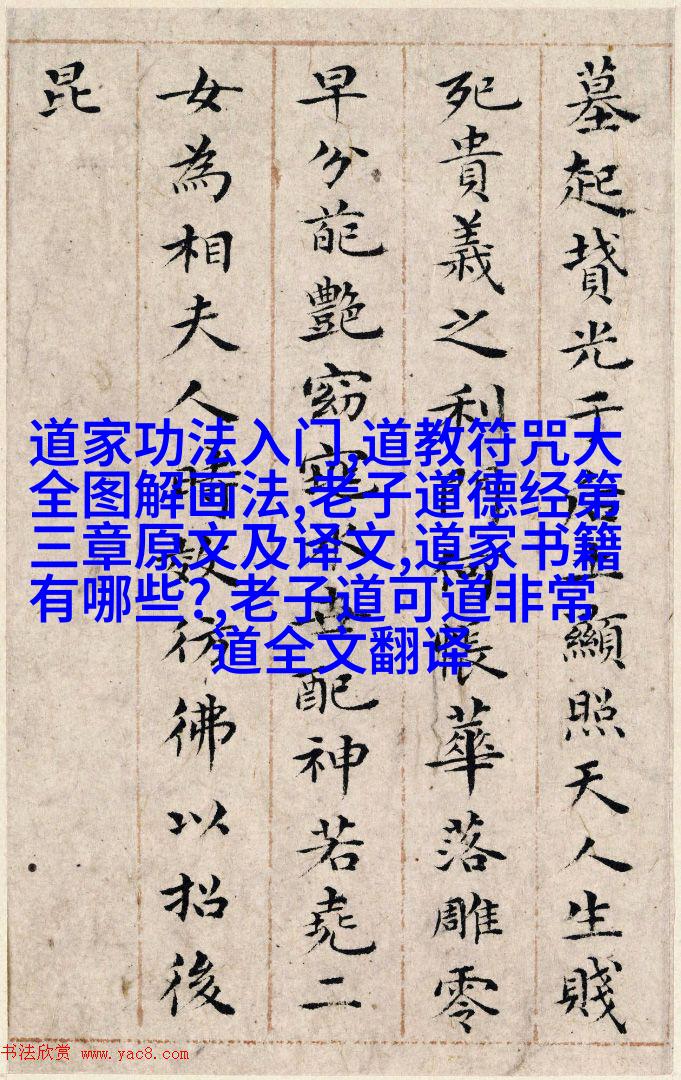 墓起墳光于后土顯照天人生賤
死貴義之利門何悵華落雕零
早分葩艷窈窕永世配神若堯二
女為相夫人時效彷彿以招後
昆
道家功法入门,道教符咒大
全图解画法,老子道德经第
三章原文及译文,道家书籍
有哪些?,老子道可道非常
道全文翻译
书法欣赏 www.yac8.com